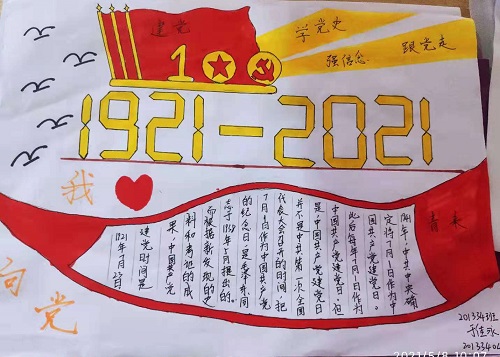 建党
学党史
强信念
跟党走
100
1921-2021
我
向党
青春
1941年,中共中央确
定将7月1日作为中
国共产党建党日。
此后每年7月1日作为
中国共产党建党日。但
是,中国共产党建党日
并不是中共第一次全国
代表大会召开的时间,把
7月1日作为中国共产党
的纪念日,是毛泽东同
志于1938年5月提出的。
而根据新发现的史
料和考证的成
果,中国共产党
建党时间是
1921年7月23日
2013343班
2021/5/8